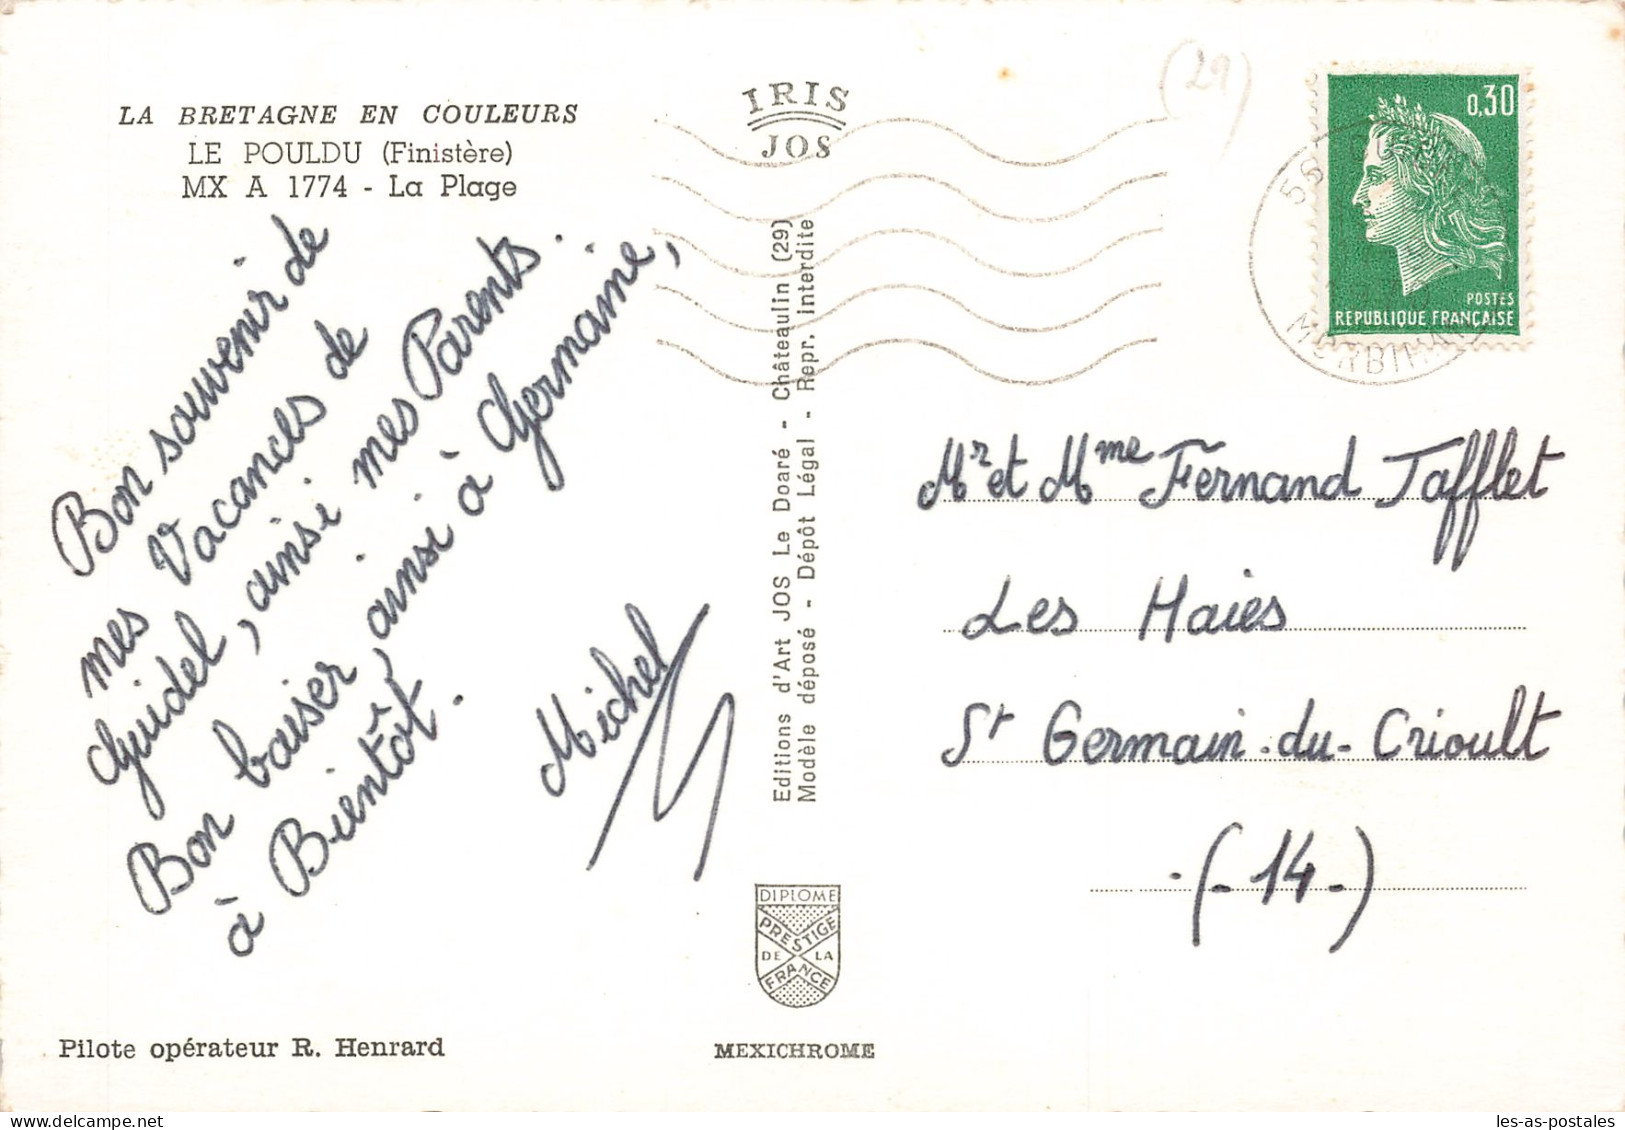 LA BRETAGNE EN COULEURS
LE POULDU (Finistère)
MX A 1774 - La Plage
IRIS
JOS
(29)
0,30
POSTES
REPUBLIQUE FRANÇAISE
56
MORBIHAN
Bon souvenir de
mes Vacances de
Guidel, ainsi mes Parents.
Bon baiser, ainsi à Germaine,
à Bientôt.
Michel
Editions d'Art JOS Le Doaré - Châteaulin (29)
Modèle déposé - Dépôt Légal - Repr. interdite
Mr et Mme Fernand Tafflet
Les Haies
St Germain-du-Crioult
-(-14-)
DIPLOME
PRESTIGE
DE LA
FRANCE
Pilote opérateur R. Henrard
MEXICHROME
les-as-postales